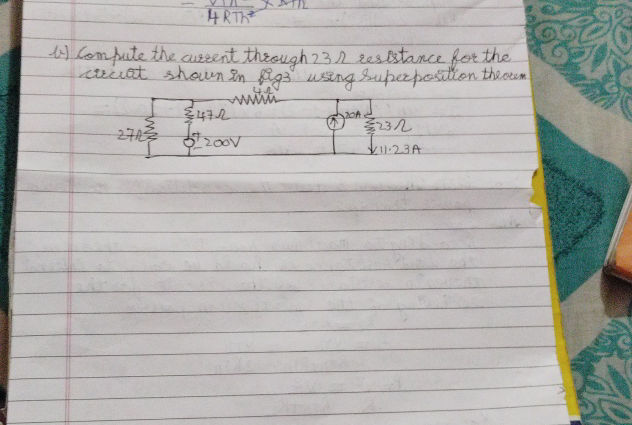 4RTh²
b) Compute the current through 23Ω resistance for the
circuit shown in fig3 using Superposition theorem
4Ω
47Ω
20A
23Ω
27Ω
+
-
200V
11.23A